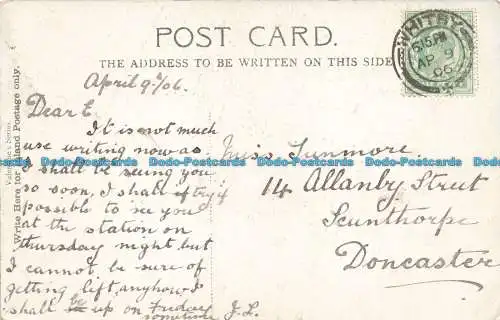 POST CARD.
THE ADDRESS TO BE WRITTEN ON THIS SIDE
WHITBY
6.15 PM
AP 9
06
Write Here for Inland Postage only.
April 9th/06.
Dear E
It is not much
use writing now as
I shall be seeing you
so soon, I shall try if
possible to see you
at the station on
thursday night but
I cannot be sure of
getting left, anyhow I
shall be up on Friday
sometime J.L.
Miss Lunmore
14 Allanby Street
Scunthorpe
Doncaster
Dodo-Postcards Dodo-Postcards Dodo-Postcards Dodo-Postcards Dodo-Postcards